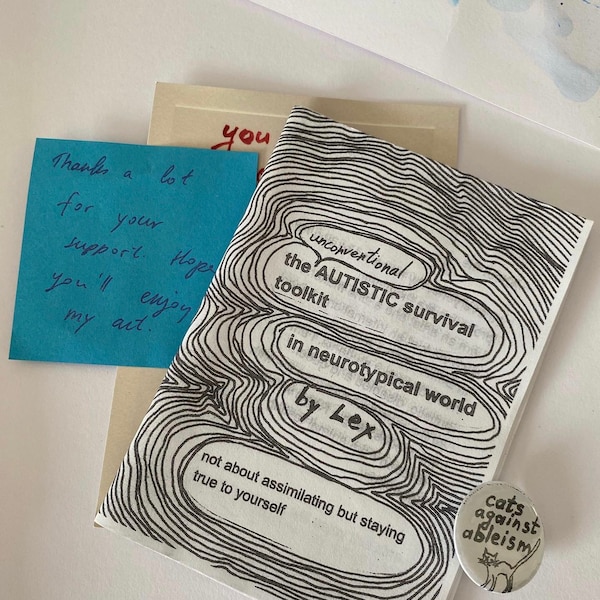 you
Thanks a lot
for your
support. Hope
you'll enjoy
my art.
unconventional
the AUTISTIC survival
toolkit
in neurotypical world
by Lex
not about assimilating but staying
true to yourself
cats
against
ableism